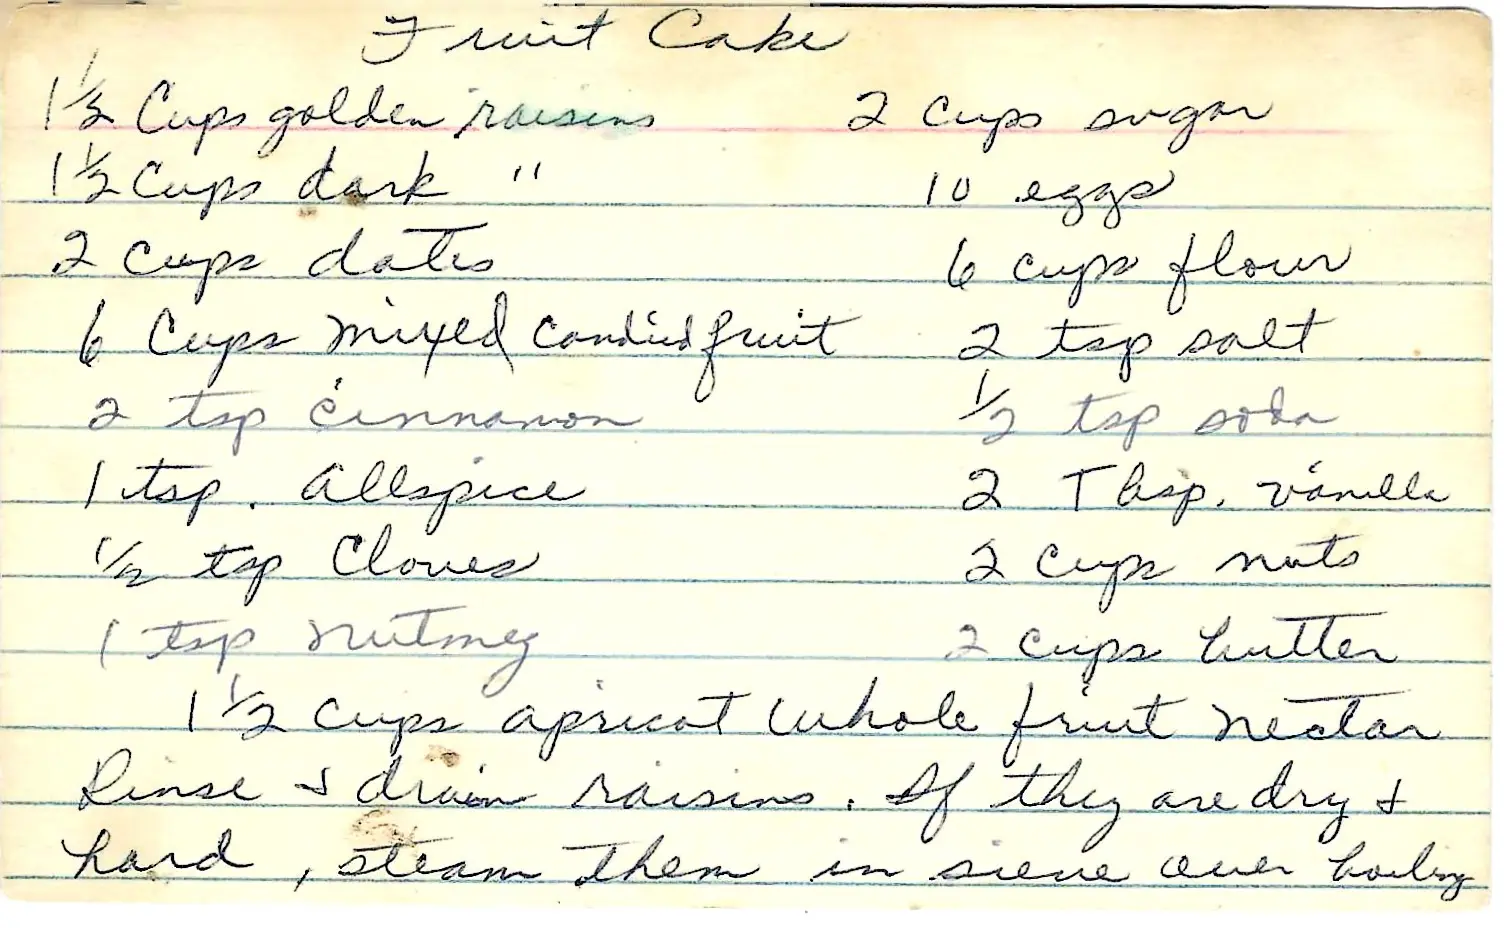 Fruit Cake
1 1/2 Cups golden raisins 2 cups sugar
1 1/2 Cups dark " 10 eggs
2 cups dates 6 cups flour
6 Cups Mixed Candied fruit 2 tsp salt
2 tsp cinnamon 1/2 tsp soda
1 tsp. Allspice 2 Tbsp. vanilla
1/2 tsp Cloves 2 cups nuts
1 tsp nutmeg 2 cups butter
1 1/2 cups apricot whole fruit Nectar
Rinse & drain raisins. If they are dry &
hard, steam them in sieve over boiling